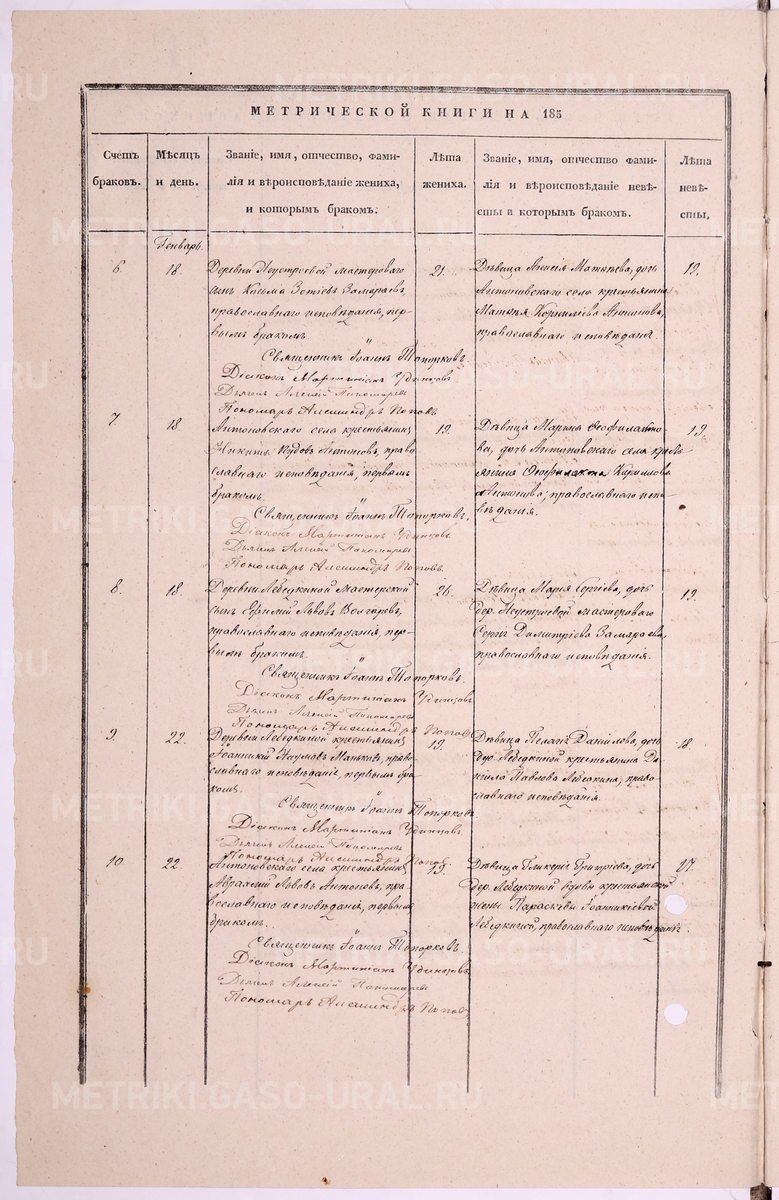 МЕТРИЧЕСКОЙ КНИГИ НА 185
Счетъ браковъ.
Мѣсяцъ и день.
Званіе, имя, отчество, фами-
лія и вѣроисповѣданіе жениха,
и которымъ бракомъ.
Лѣта жениха.
Званіе, имя, отчество фами-
лія и вѣроисповѣданіе невѣ-
сты и которымъ бракомъ.
Лѣта невѣ-
сты.
Генварь.
6.
18.
Деревни Неустроевой мастероваго
сынъ Козьма Зотіевъ Замараевъ,
православнаго исповѣданія, пер-
вымъ бракомъ.
21.
Дѣвица Матѳѣева, дочь
Антоновскаго села крестьянина
Матѳѣя Корнилiева Антонова,
православнаго исповѣданія.
19.
Священникъ Іоаннъ Топорковъ
Діаконъ Мартиніанъ Удинцовъ
Дьячекъ Алексѣй Пономаревъ
Пономарь Александръ Поповъ
7
18.
Антоновскаго села крестьянинъ
Никита Антоновъ, право
славнаго исповѣданія, первымъ
бракомъ.
19.
Дѣвица Марина Ѳеофилакто
ва, дочь Антоновскаго села кресть
янина Ѳеофилакта Кириллова
Антонова, православнаго испо-
вѣданія.
19
Священникъ Іоаннъ Топорковъ.
Діаконъ Мартиніанъ Удинцовъ
Дьячекъ Алексѣй Пономаревъ
Пономарь Александръ Поповъ.
8.
18.
Деревни Лебедкиной Мастерской
сынъ Львовъ Волгаревъ,
православнаго исповѣданія, пер-
вымъ бракомъ.
26.
Дѣвица Марія Сергіева, дочь
дер. Неустроевой мастероваго
Сергѣя Димитріева Замараева,
православнаго исповѣданія.
19.
Священникъ Іоаннъ Топорковъ.
Діаконъ Мартиніанъ Удинцовъ
Дьячекъ Алексѣй Пономаревъ
Пономарь Александръ Поповъ
9
22.
Деревни Лебедкиной крестьянинъ
Іоанникій Наумовъ Маньковъ, право-
славнаго исповѣданія, первымъ бра-
комъ.
19.
Дѣвица Пелагія Данилова, дочь
дер. Лебедкиной крестьянина Да
ніила Павлова Лебедкина, право
славнаго исповѣданія.
18.
Священникъ Іоаннъ Топорковъ.
Діаконъ Мартиніанъ Удинцовъ
Дьячекъ Алексѣй Пономаревъ
Пономарь Александръ Поповъ.
10
22
Антоновскаго села крестьянинъ
Львовъ Антоновъ, пра-
вославнаго исповѣданія, первымъ
бракомъ.
19.
Дѣвица Гликерія Григоріева, дочь
дер. Лебедкиной вдовы крестьянской
жены Параскевы Іоанникіевой
Лебедкиной, православнаго исповѣданія
17.
Священникъ Іоаннъ Топорковъ
Діаконъ Мартиніанъ Удинцовъ
Дьячекъ Алексѣй Пономаревъ
Пономарь Александръ Поповъ
METRIKI.GASO-URAL.RU